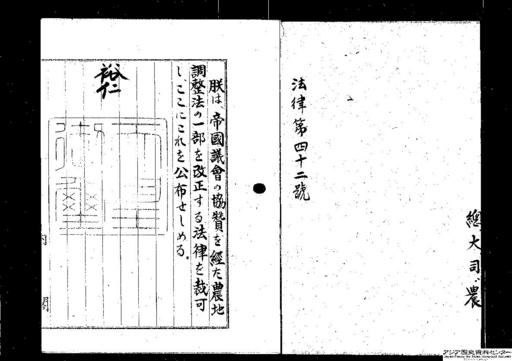 總大司農
法律第四十二號
朕は、帝國議會の協贊を経た農地
調整法の一部を改正する法律を裁可
し、ここにこれを公布せしめる。
裕仁
内
閣
アジア歴史資料センター